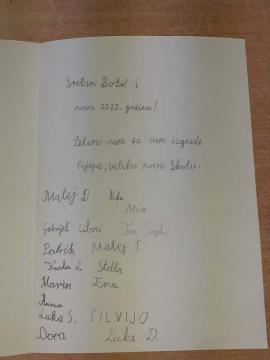 Sretan Božić i
nova 2022. godina!
Želimo vam da vam izgrade
lijepu, veliku novu školu.
Matej D Nika
Mia
Gabrijel
Patrik Matej T.
Stella
Marin Ema
Luka S. SILVIJO
Dora Luka D.